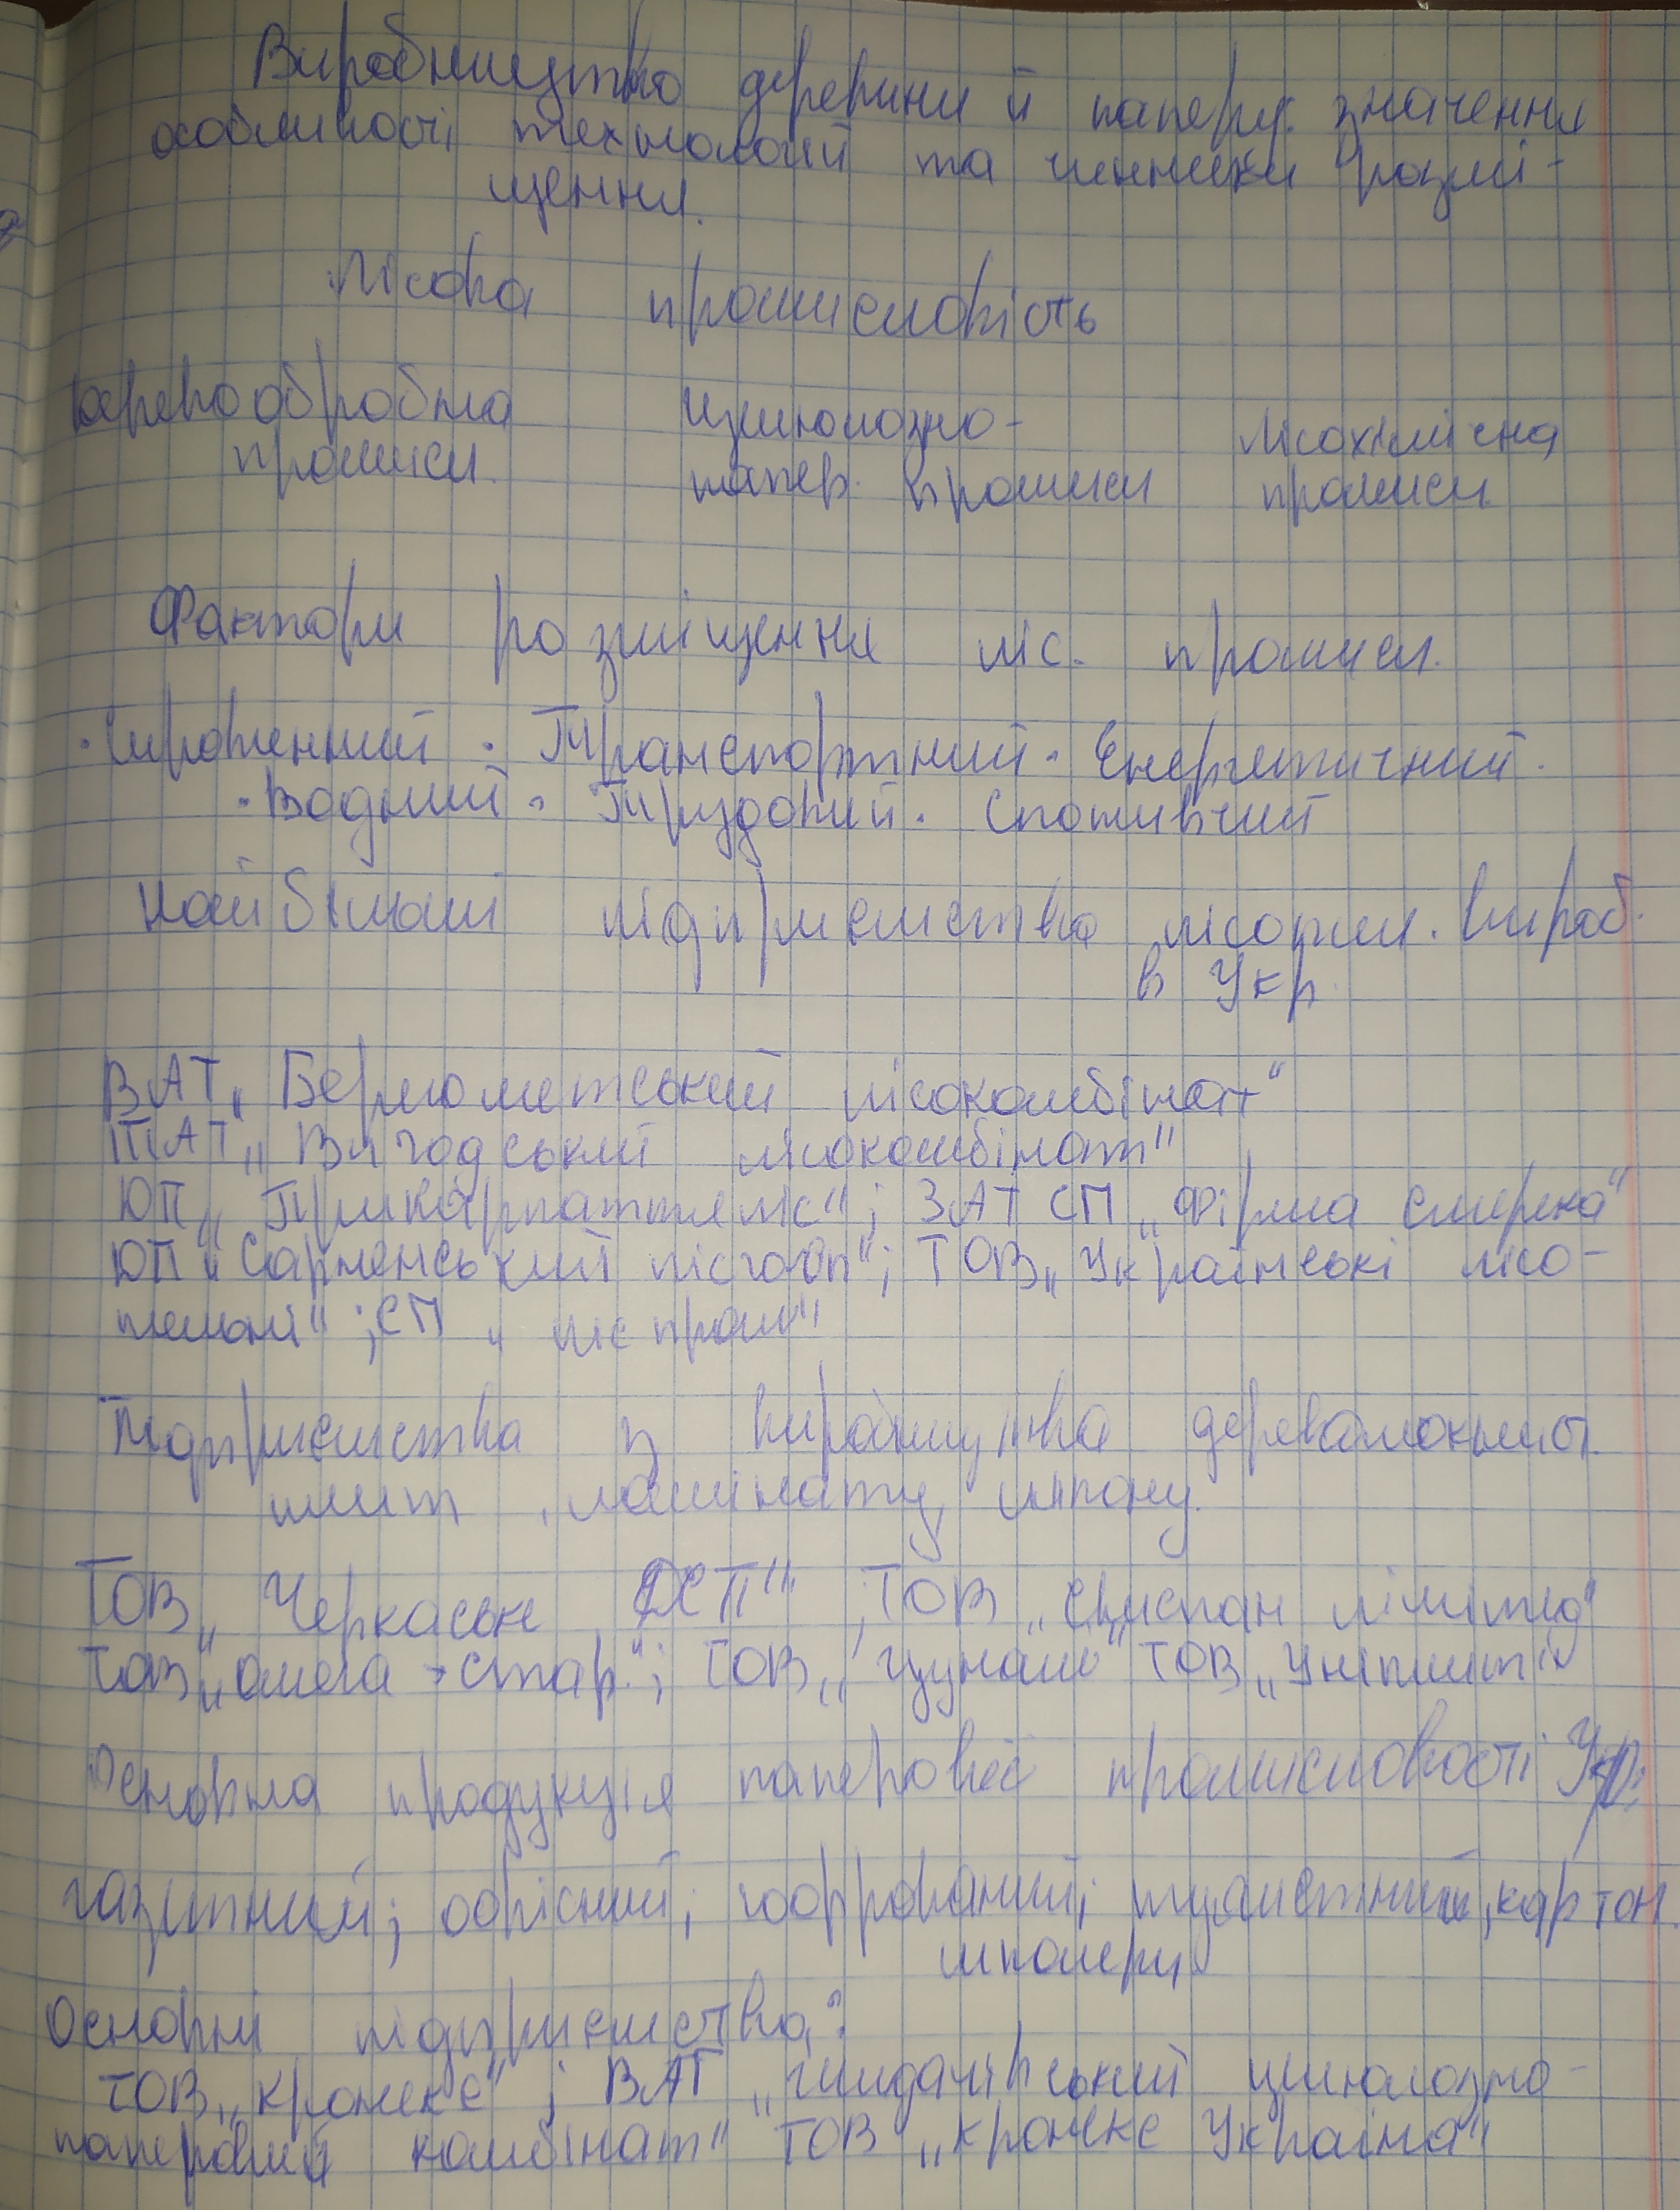 Виробництво деревини й паперу: значення
особливості технологій та чинники розмі-
щення.
Лісова промисловість
деревообробна целюлозно- лісохімічна
промисл. папер. промисл промисл.
Фактори розміщення ліс. промисл.
· Сировинний · Транспортний · Енергетичний.
· Водний · Трудовий · Споживчий
Найбільші підприємства лісопил. вироб.
в Укр.
ВАТ „Берегометський лісокомбінат"
ПАТ „Вигодський лісокомбінат"
ЮП „Прикарпаттяліс"; ЗАТ СП „Фірма Смерека"
ЮП „Сарненський лісгосп"; ТОВ „Українські лісо-
пильні"; СП „Ліспром"
Підприємства з виробництва деревоволокнист.
плит, ламінату, шпону.
ТОВ „Черкаське ДСП"; ТОВ „Свиспан лімітед"
ТОВ „Омега-Стар."; ТОВ „Цунамі" ТОВ „Уніплит"
Основна продукція паперової промисловості Укр:
газетний; офісний; гофрований; туалетний, картон.
шпалери
Основні підприємства:
ТОВ „Кронекс"; ВАТ „Жидачівський целюлозно-
паперовий комбінат" ТОВ „Кронекс Україна"